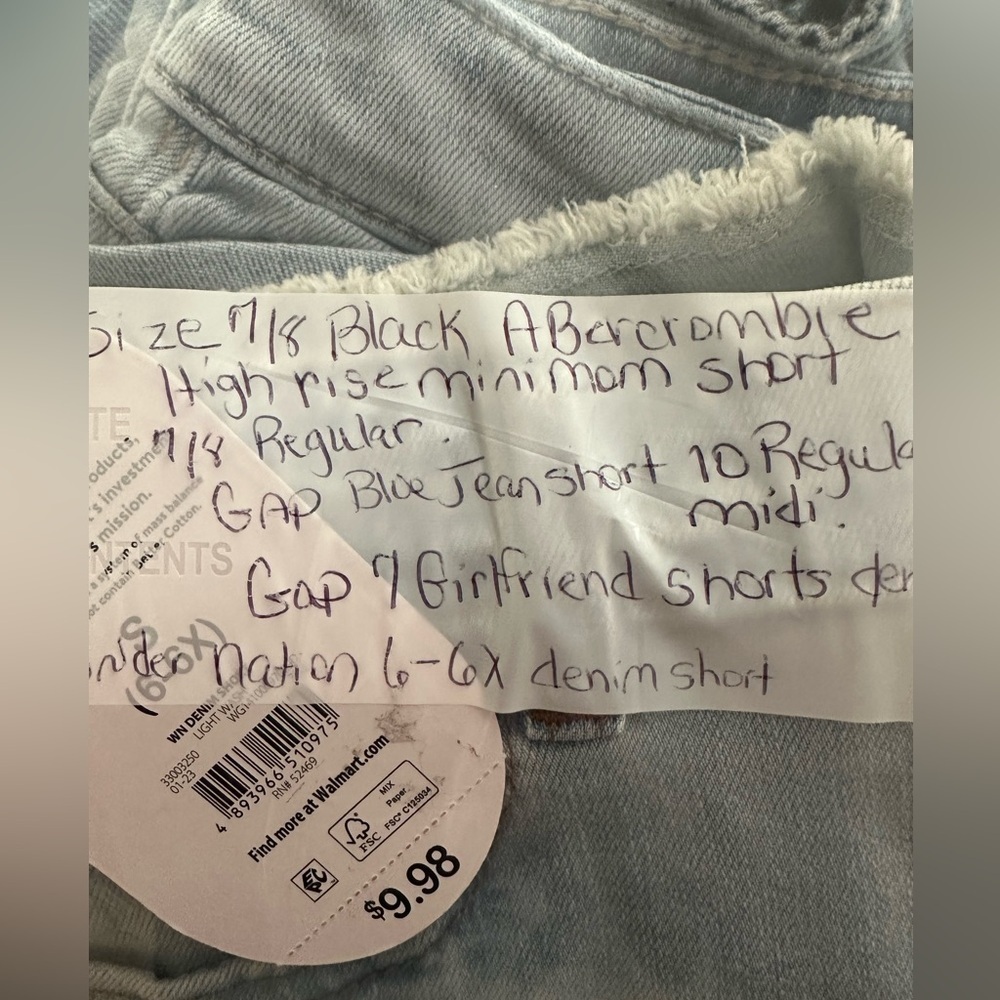 Size 7/8 Black ABercrombie
High rise mini mom short
7/8 Regular.
GAP Blue Jean short 10 Regula
midi.
Gap 7 Girlfriend shorts den
nder Nation 6-6X denim short
TE
oducts,
's investme
s mission.
a system of mass balance
ot contain Better Cotton.
NTENTS
S
(6-6X)
WN DENIM SHO
LIGHT WASH
33003250
01-23
4 893966 510975
RN# 52469
Find more at Walmart.com
MIX
Paper
FSC
FSC® C125034
$9.98